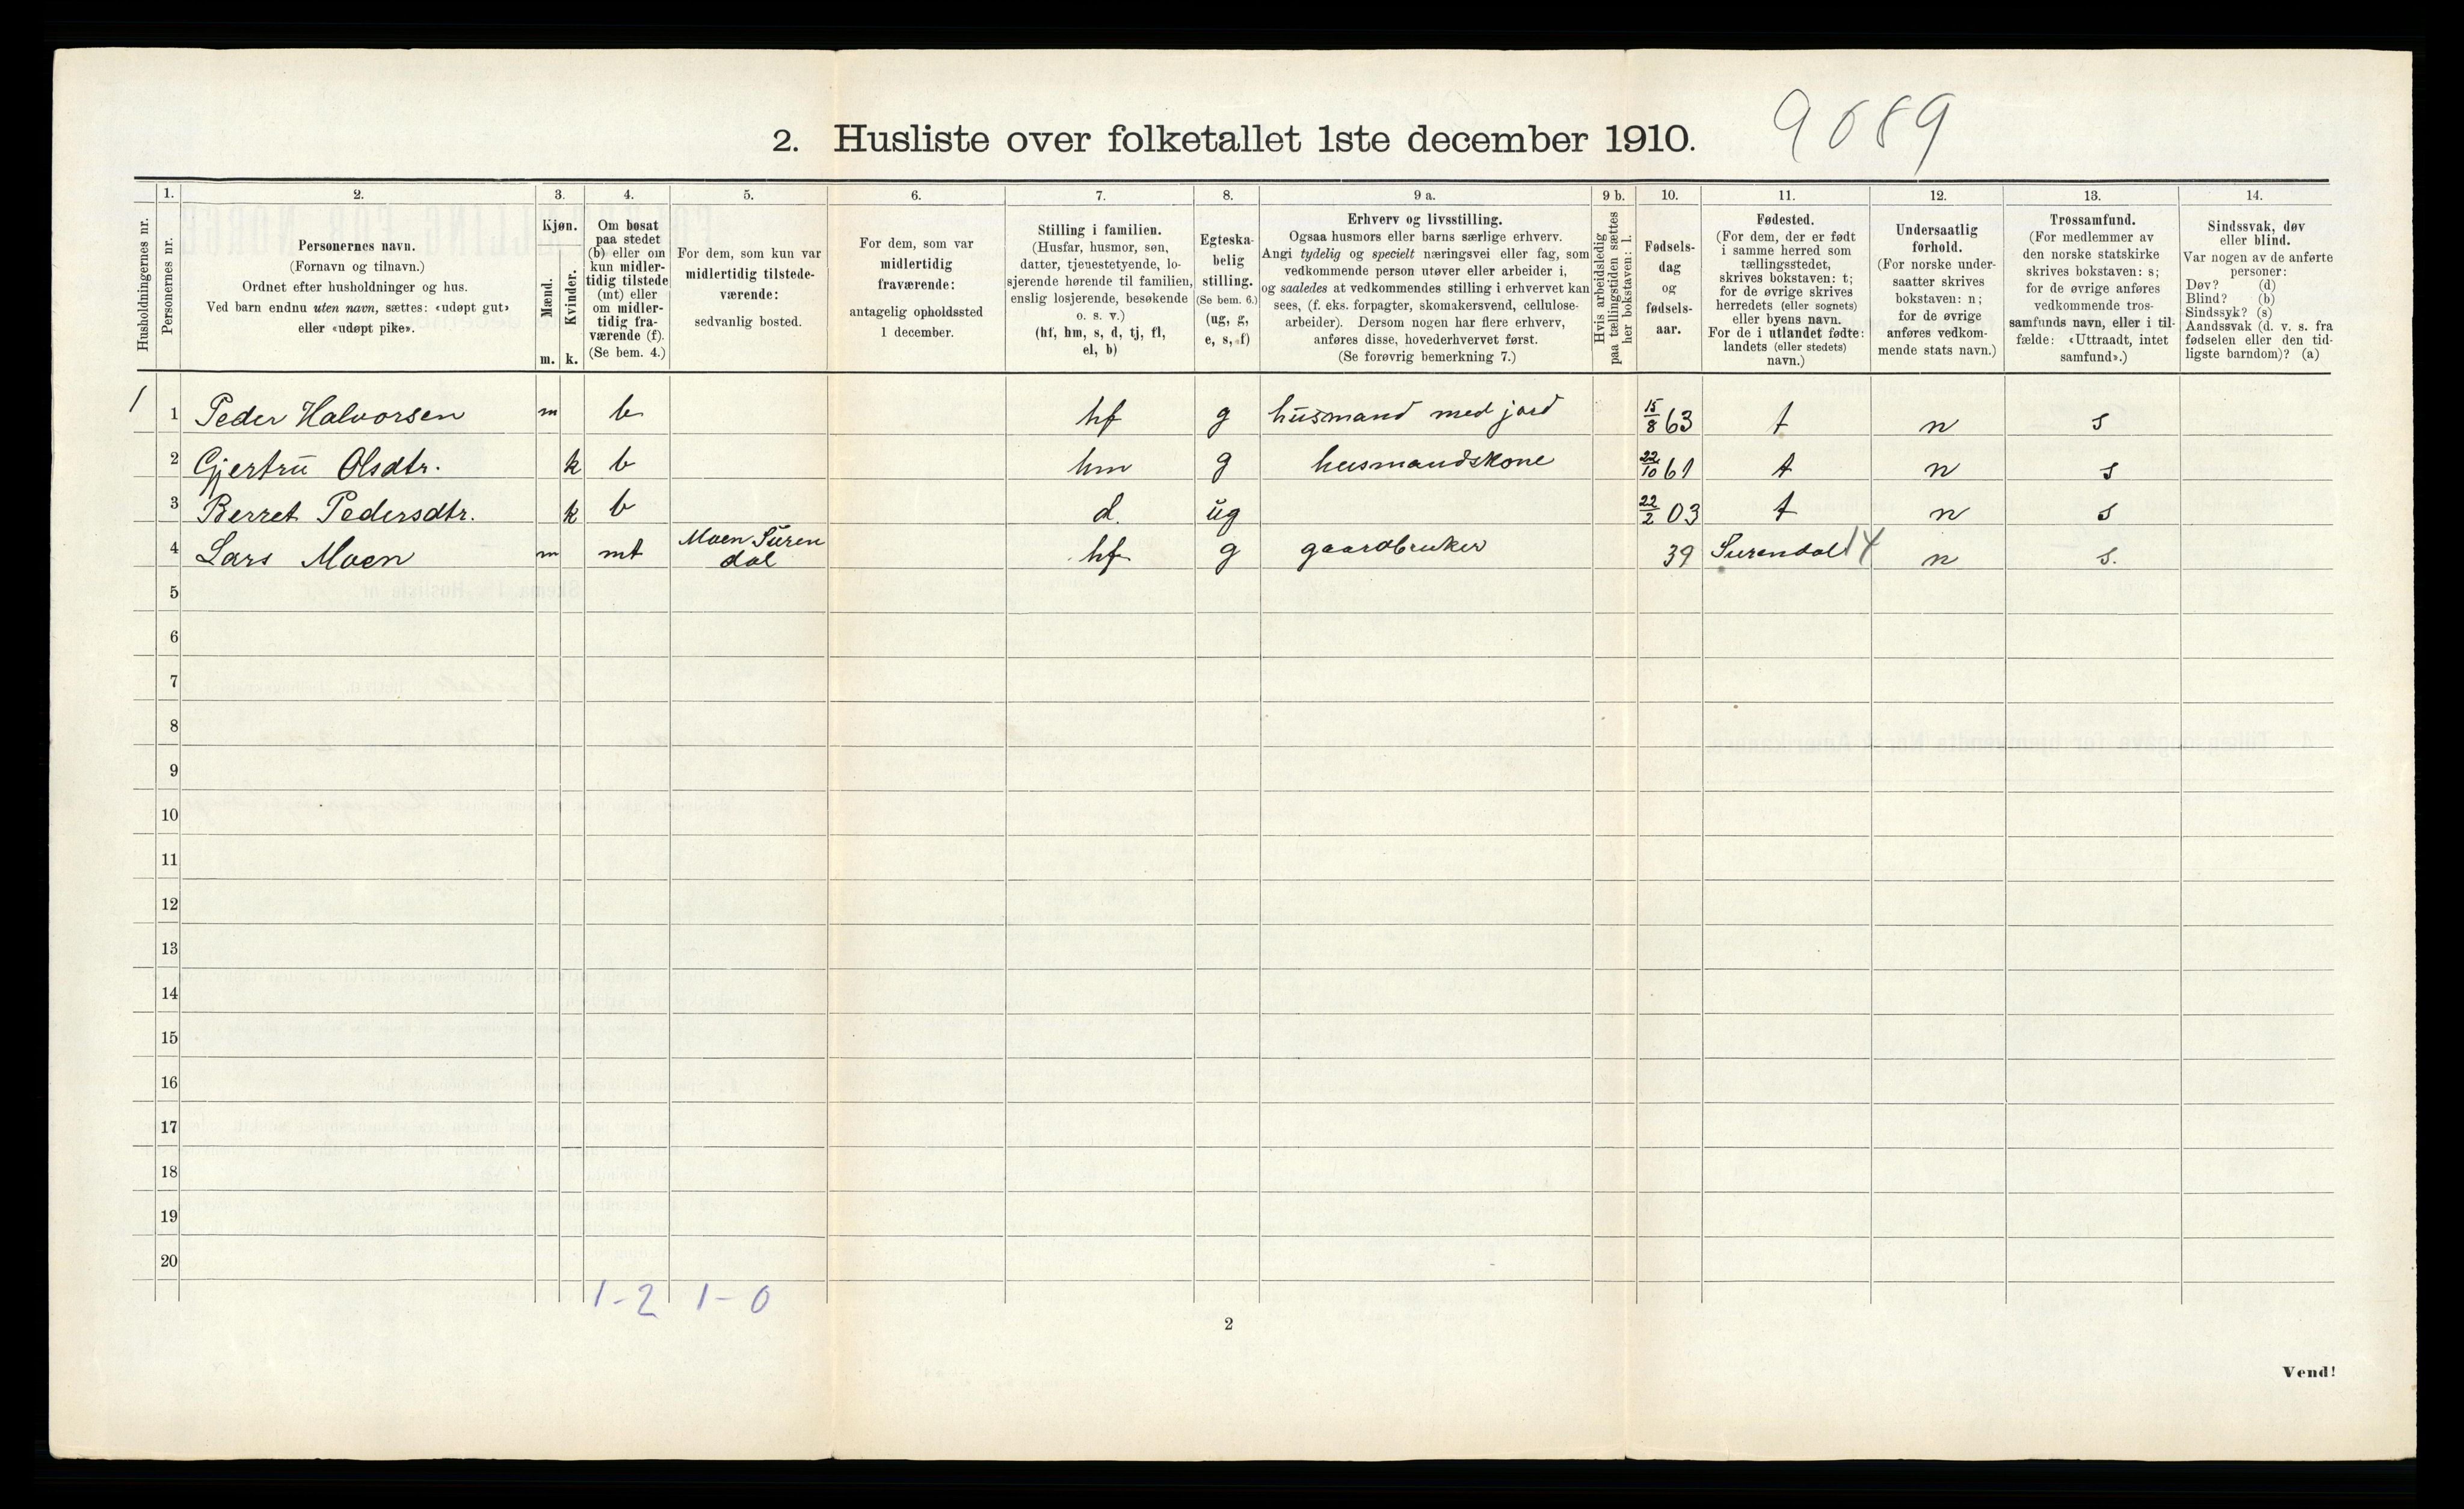 2. Husliste over folketallet 1ste december 1910.
9689
Husholdningernes nr.
1.
Personernes nr.
2.
Personernes navn.
(Fornavn og tilnavn.)
Ordnet efter husholdninger og hus.
Ved barn endnu uten navn, sættes: «udøpt gut»
eller «udøpt pike».
3.
Kjøn.
Mænd.
Kvinder.
m. k.
4.
Om bosat
paa stedet
(b) eller om
kun midler-
tidig tilstede
(mt) eller
om midler-
tidig fra-
værende (f).
(Se bem. 4.)
5.
For dem, som kun var
midlertidig tilstede-
værende:
sedvanlig bosted.
6.
For dem, som var
midlertidig
fraværende:
antagelig opholdssted
1 december.
7.
Stilling i familien.
(Husfar, husmor, søn,
datter, tjenestetyende, lo-
sjerende hørende til familien,
enslig losjerende, besøkende
o. s. v.)
(hf, hm, s, d, tj, fl,
el, b)
8.
Egteska-
belig
stilling.
(Se bem. 6.)
(ug, g,
e, s, f)
9 a.
Erhverv og livsstilling.
Ogsaa husmors eller barns særlige erhverv.
Angi tydelig og specielt næringsvei eller fag, som
vedkommende person utøver eller arbeider i,
og saaledes at vedkommendes stilling i erhvervet kan
sees, (f. eks. forpagter, skomakersvend, cellulose-
arbeider). Dersom nogen har flere erhverv,
anføres disse, hovederhvervet først.
(Se forøvrig bemerkning 7.)
9 b.
Hvis arbeidsledig
paa tællingstiden sættes
her bokstaven: l.
10.
Fødsels-
dag
og
fødsels-
aar.
11.
Fødested.
(For dem, der er født
i samme herred som
tællingsstedet,
skrives bokstaven: t;
for de øvrige skrives
herredets (eller sognets)
eller byens navn.
For de i utlandet fødte:
landets (eller stedets)
navn.)
12.
Undersaatlig
forhold.
(For norske under-
saatter skrives
bokstaven: n;
for de øvrige
anføres vedkom-
mende stats navn.)
13.
Trossamfund.
(For medlemmer av
den norske statskirke
skrives bokstaven: s;
for de øvrige anføres
vedkommende tros-
samfunds navn, eller i til-
fælde: «Uttraadt, intet
samfund».)
14.
Sindssvak, døv
eller blind.
Var nogen av de anførte
personer:
Døv? (d)
Blind? (b)
Sindssyk? (s)
Aandssvak (d. v. s. fra
fødselen eller den tid-
ligste barndom)? (a)
1 1 Peder Halvorsen m b hf g husmand med jord 15/8 63 t n s
2 Gjertru Olsdtr. k b hm g husmandskone 22/10 61 t n s
3 Berret Pedersdtr. k b d. ug 22/2 03 t n s
4 Lars Moen m mt Moen Suren
dal hf g gaardbruker 39 Surendal 14 n s.
5
6
7
8
9
10
11
12
13
14
15
16
17
18
19
20
1-2 1-0
2
Vend!